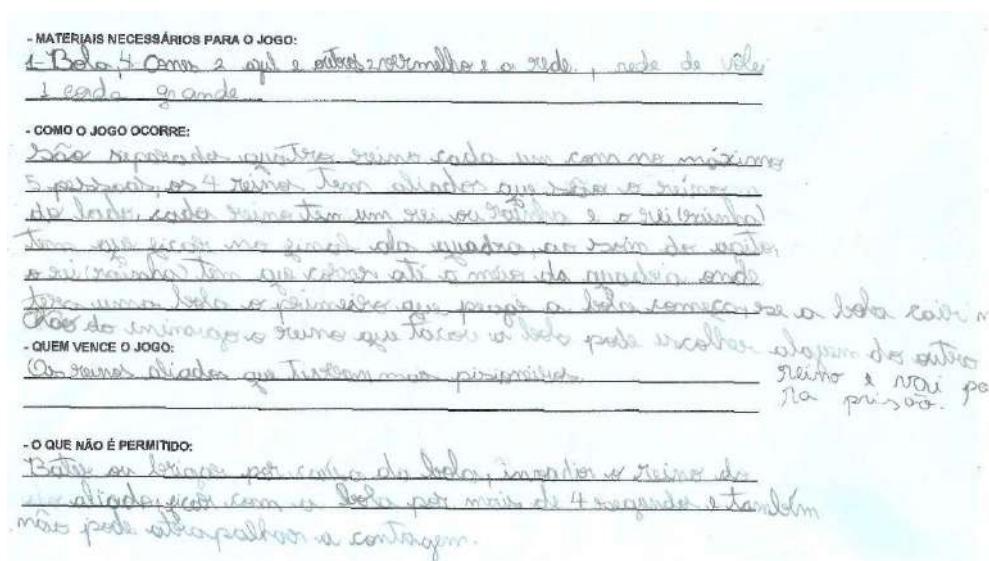 - MATERIAIS NECESSÁRIOS PARA O JOGO:
1-Bola, 4 Cones 2 azul e outros 2 vermelho e a rede., rede de vôlei
1 corda grande
- COMO O JOGO OCORRE:
São separados quatro reino cada um com no máximo
5 pessoas, os 4 reinos tem aliados que são o reino
do lado, cada reino tem um rei ou rainha e o rei (rainha)
tem que ficar no final da quadra, ao sinal do apito,
o rei (rainha) tem que correr até o meio da quadra onde
tera uma bola o primeiro que pegar a bola começa, se a bola cair n
chão do inimigo o reino que tacou a bola pode escolher alguem do outro
reino e vai pa
ra prisão.
- QUEM VENCE O JOGO:
Os reinos aliados que tiverem mais prisioneiros
- O QUE NÃO É PERMITIDO:
Bater ou brigar por causa da bola, invadir o reino do
aliado, ficar com a bola por mais de 4 segundos e também
não pode atrapalhar a contagem.